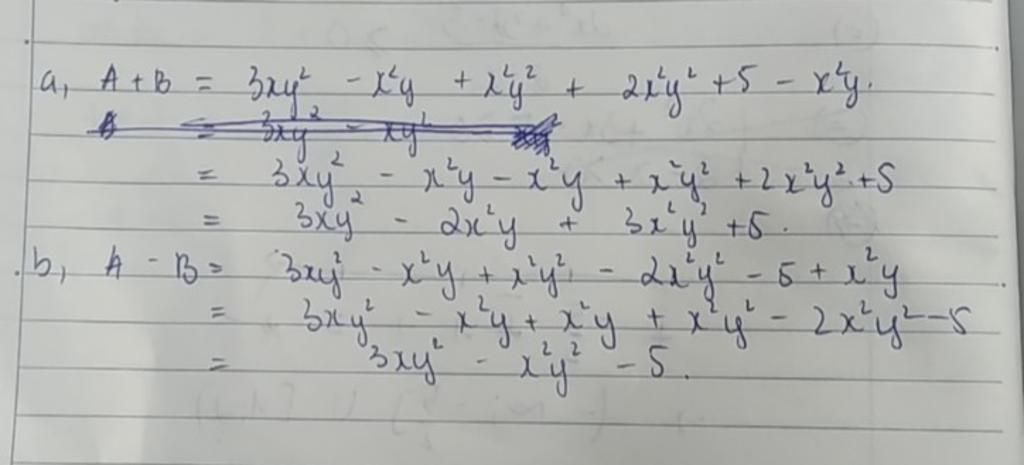 a, A + B = 3xy² - x²y + x²y² + 2x²y² + 5 - x²y.
= 3xy² - xy²
= 3xy² - x²y - x²y + x²y² + 2x²y² + 5
= 3xy² - 2x²y + 3x²y² + 5.
b, A - B = 3xy² - x²y + x²y² - 2x²y² - 5 + x²y
= 3xy² - x²y + x²y + x²y² - 2x²y² - 5
= 3xy² - x²y² - 5.